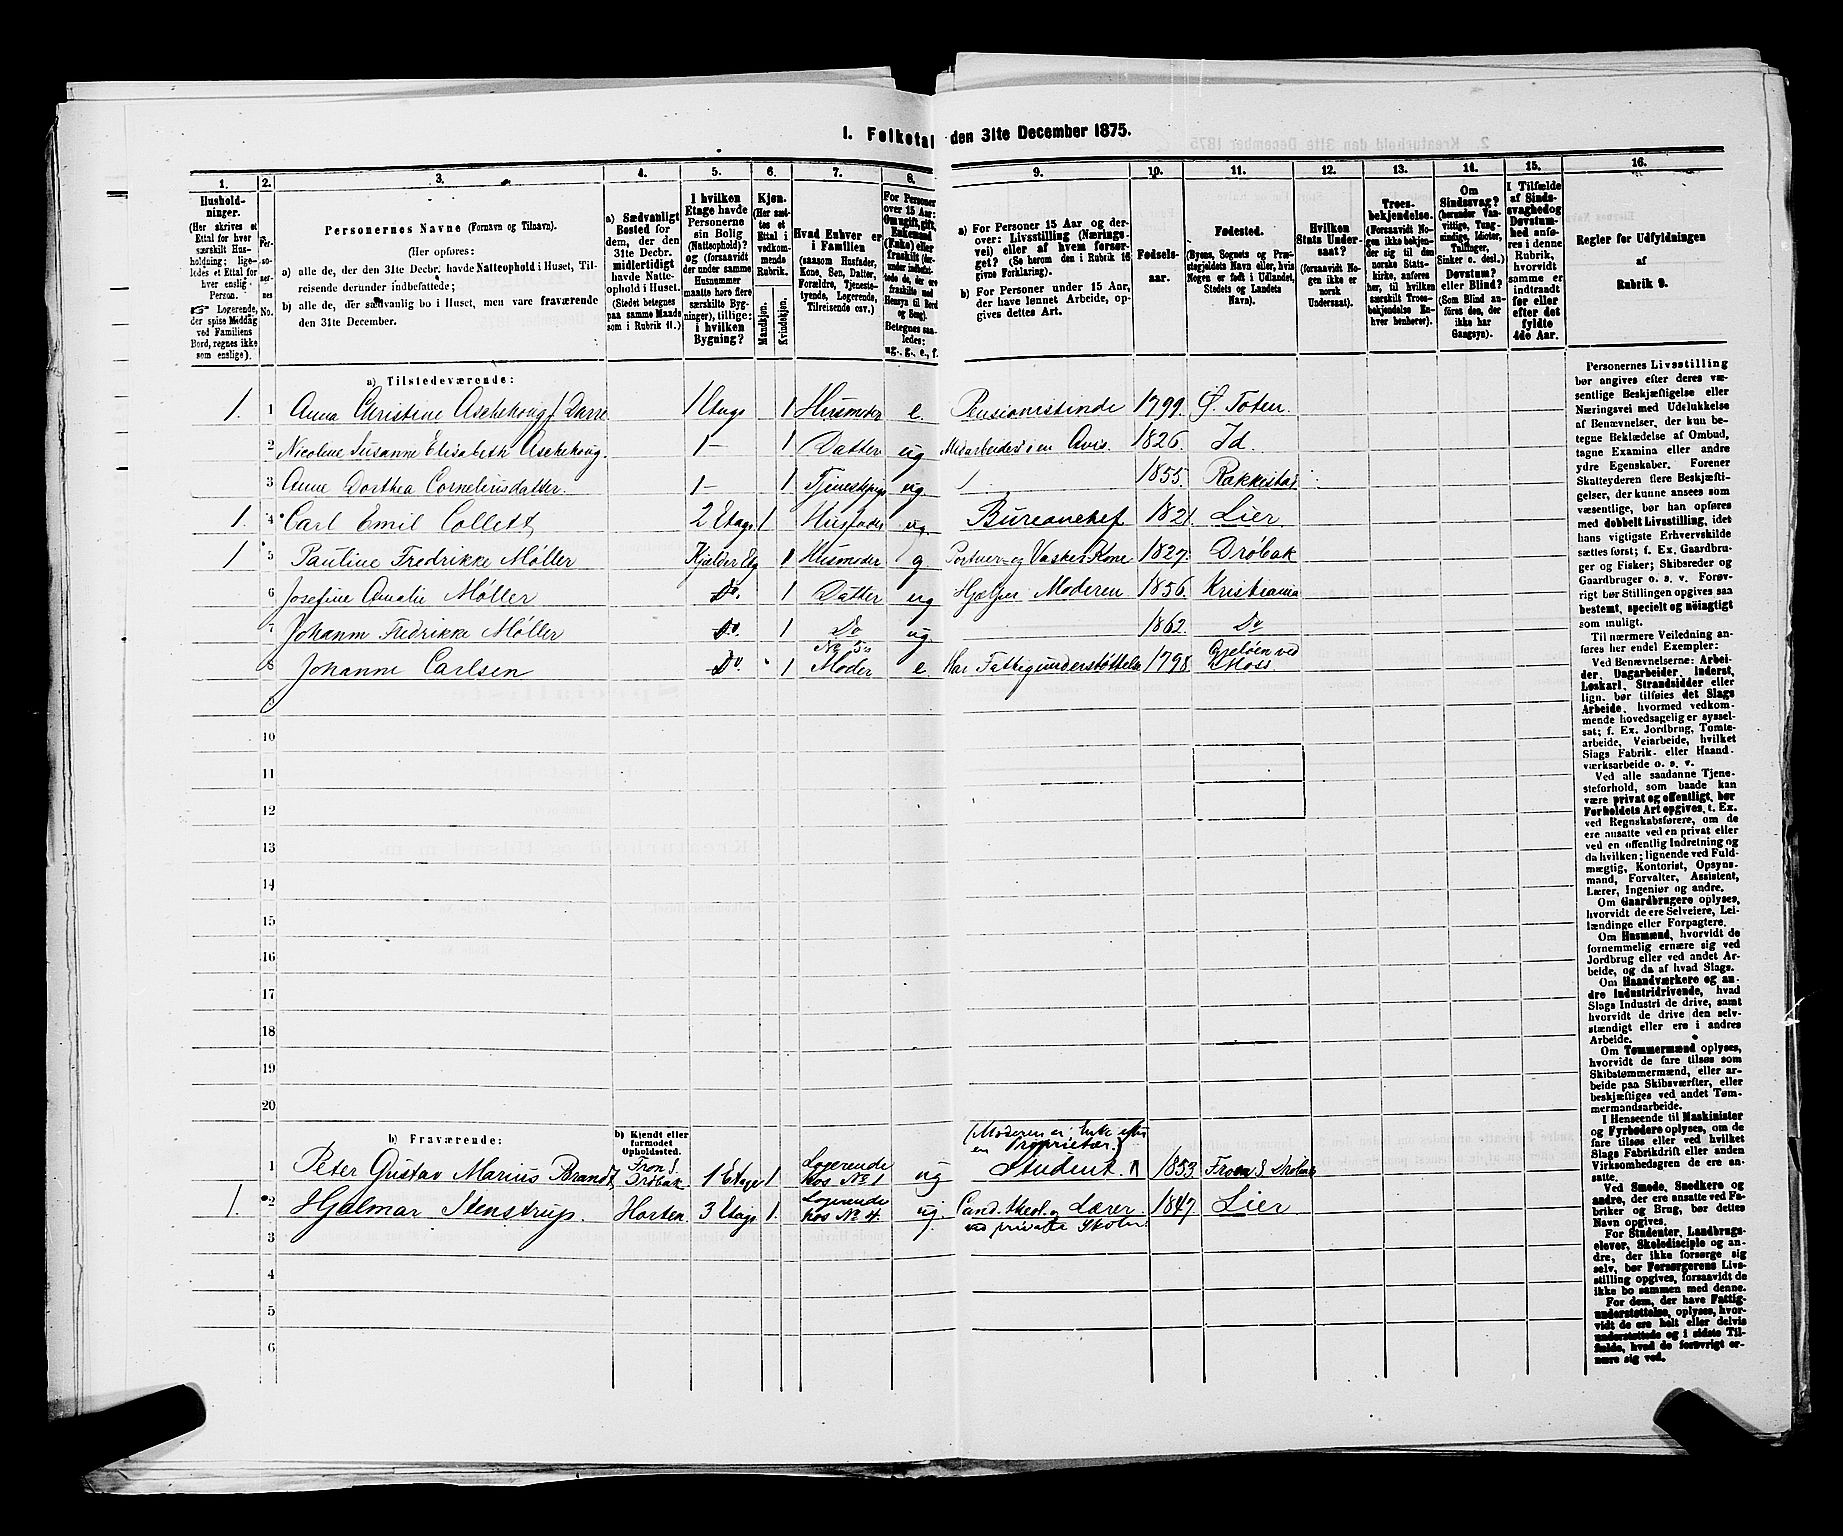 1. Folketal den 31te December 1875.
1. 2. 3. 4. 5. 6. 7. 8. 9. 10. 11. 12. 13. 14. 15. 16.
Husholdninger.
(Her skrives et Ettal for hver særskilt Husholdning; ligeledes et Ettal for hver enslig Person.
☞ Logerende, der spise Middag ved Familiens Bord, regnes ikke som enslige).
Personernes No.
Personernes Navne (Fornavn og Tilnavn).
(Her opføres:
a) alle de, der den 31te Decbr. havde Natteophold i Huset, Tilreisende derunder indbefattede;
b) alle de, der sædvanlig bo i Huset, men vare fraværende den 31te December.
a) Sædvanligt Bosted for dem, der den 31te Decbr. midlertidigt havde Natteophold i Huset. (Stedet betegnes paa samme Maade som i Rubrik 11.)
I hvilken Etage havde Personerne sin Bolig (Natteophold)? og (forsaavidt der under samme Husnummer maatte høre flere særskilte Bygninger), tillige: i hvilken Bygning?
Kjøn. (Her sættes et Ettal i vedkommende Rubrik.
Mandkjøn. Kvindekjøn.
Hvad Enhver er i Familien (saasom Husfader, Kone, Søn, Datter, Forældre, Tjenestetyende, Logerende, Tilreisende osv.)
For Personer over 15 Aar: Om ugift, gift, Enkemand (Enke) eller fraskilt
Betegnes saaledes: ug., g., e., f.
a) For Personer 15 Aar og derover: Livsstilling (Næringsvei) eller af hvem forsørget? (Se herom den i Rubrik 16 givne Forklaring).
b) For Personer under 15 Aar, der have lønnet Arbeide, opgives dettes Art.
Fødselsaar.
Fødested. (Byens, Sognets og Præstegjeldets Navn eller, hvis Nogen er født i Udlandet, Stedets og Landets Navn).
Hvilken Stats Undersaat? (forsaavidt Nogen ikke er norsk Undersaat).
Troesbekjendelse. (Forsaavidt Nogen ikke bekjender sig til den norske Statskirke, anføres her, til hvilken særskilt Troesbekjendelse Enhver henhører).
Om Sindssvag? (herunder Vanvittige, Tungsindige, Idioter, Tullinger, Sinker o. desl.). Døvstum? eller Blind? (Som Blind anføres den, der ikke har Gangsyn).
I Tilfælde af Sindssvaghed og Døvstumhed anføres i denne Rubrik, hvorvidt samme er indtraadt før eller efter det fyldte 4de Aar.
Regler for Udfyldningen af Rubrik 9.
a) Tilstedeværende:
1. 1 Anna Christine Aschehoug f. Darre 1 Etage 1 Husmoder e. Pensionistinde 1799. Ø. Toten.
2 Nicoline Susanne Elisabeth Aschehoug. 1 — 1 Datter ug Medarbeider i en Avis. 1826. Id.
3 Anne Dorthea Cornelinsdatter. 1 — 1 Tjenestepige ug. 1855. Rakkestad
1. 4 Carl Emil Collett 2 Etage 1 Husfader ug. Bureauchef 1821. Lier
1 5 Pauline Fredrikke Møller Kjelder Etg 1 Husmoder g Portner- og Vasker Kone 1827. Drøbak
6 Josefine Amalie Møller Do. 1 Datter ug Hjelper Moderen 1856. Kristiania
7 Johanne Fredrikke Møller Do. 1 Do ug. 1862. Do
8 Johanne Carlsen Do. 1 No 5s Moder e. Har Fattigunderstøttelse 1798. Gjeløen ved Moss.
9
10
11
12
13
14
15
16
17
18
19
20
b) Fraværende:
b) Kjendt eller formodet Opholdssted.
1 Peter Gustav Marius Brandt, Fron S. Drøbak 1 Etage 1 Logerende hos No 1 ug (Moderen er Enke efter en Proprietær.) Student 1853. Fron S. Drøbak
1. 2 Hjalmar Stenstrup. Horten 3 Etage 1. Logerende hos No 4. ug. Cand. theol. og Lærer ved private Skoler. 1847. Lier
3
4
5
6
Personernes Livsstilling
bør angives efter deres væ-
sentlige Beskjæftigelse eller
Næringsvei med Udelukkelse
af Benævnelser, der kun be-
tegne Beklædelse af Ombud,
tagne Examina eller andre
ydre Egenskaber. Forener
Skatteyderen flere Beskjæfti-
gelser, der kunne ansees som
væsentlige, bør han opføres
med dobbelt Livsstilling, idet
hans vigtigste Erhvervskilde
sættes først; f. Ex. Gaardbru-
ger og Fisker; Skibsreder og
Gaardbruger o. s. v. Forøv-
rigt bør Stillingen opgives saa
bestemt, specielt og nøiagtigt
som muligt.
Til nærmere Veiledning an-
føres her endel Exempler:
Ved Benævnelserne: Arbei-
der, Dagarbeider, Inderst,
Løskarl, Strandsidder eller
lign. bør tilføies det Slags
Arbeide, hvormed vedkom-
mende hovedsagelig er syssel-
sat; f. Ex. Jordbrug, Tømte-
arbeide, Veiarbeide, hvilket
Slags Fabrik- eller Haand-
værksarbeide o. s. v.
Ved alle saadanne Tjene-
steforhold, som baade kan
være privat og offentligt, bør
Forholdets Art opgives, t. Ex.
ved Regnskabsførere, om de
ere ansatte ved en privat eller
ved en offentlig Indretning og
da hvilken; lignende ved Fuld-
mægtig, Kontorist, Opsyns-
mand, Forvalter, Assistent,
Lærer, Ingeniør og andre.
Om Gaardbrugere oplyses,
hvorvidt de ere Selveiere, Lei-
lændinge eller Forpagtere.
Om Husmænd, hvorvidt de
fornemmelig ernære sig ved
Jordbrug eller ved andet Ar-
beide, og da af hvad Slags.
Om Haandværkere og an-
dre Industridrivende, hvad
Slags Industri de drive, samt
hvorvidt de drive den selv-
stændigt eller ere i andres
Arbeide.
Om Tømmermænd oplyses,
hvorvidt de fare tilsøs som
Skibstømmermænd, eller ar-
beide paa Skibsværfter, eller
beskjæftiges ved andet Tøm-
mermandsarbeide.
I Henseende til Maskinister
og Fyrbødere oplyses, om de
fare tilsøs eller ved hvilket
Slags Fabrikdrift eller anden
Virksomhedsgren de ere an-
satte.
Ved Smede, Snedkere og
andre, der ere ansatte ved Fa-
briker og Brug, bør dettes
Navn opgives.
For Studenter, Landbrugs-
elever, Skoledisciple og an-
dre, der ikke forsørge sig
selv, bør Forsørgerens Livs-
stilling opgives, forsaavidt de
ikke bo sammen med denne.
For dem, der have Fattig-
understøttelse, oplyses, hvor-
vidt de ere helt eller delvis
understøttede og i sidste Til-
fælde, hvad de forøvrigt er-
nære sig ved.